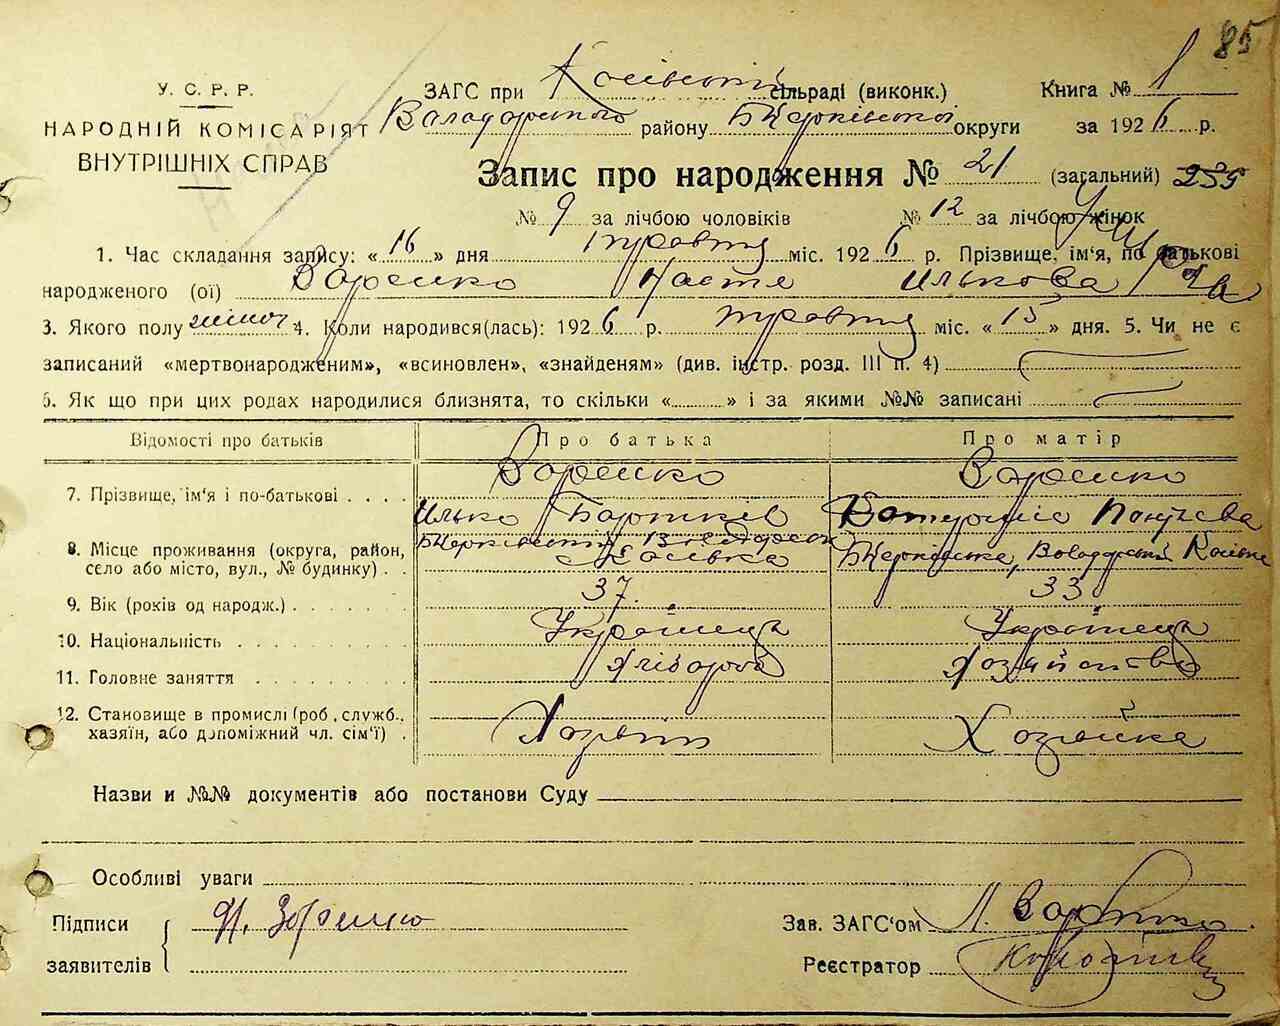 85
У. С. Р. Р.
НАРОДНІЙ КОМІСАРІЯТ
ВНУТРІШНІХ СПРАВ
ЗАГС при Косівській сільраді (виконк.) Книга № 1
Володарського району БЦерківської округи за 1926 р.
Запис про народження № 21 (загальний) 235
№ 9 за лічбою чоловіків № 12 за лічбою жінок
1. Час складання запису: «16» дня травня міс. 1926 р. Прізвище, ім'я, по батькові
народженого (ої) Настя Илькова
3. Якого полу жіноч 4. Коли народився(лась): 1926 р. травня міс. «15» дня. 5. Чи не є
записаний «мертвонародженим», «всиновлен», «знайденям» (див. інстр. розд. III п. 4)
6. Як що при цих родах народилися близнята, то скільки «......» і за якими №№ записані
Відомості про батьків Про батька Про матір
7. Прізвище, ім'я і по-батькові . . . .
Илько
8. Місце проживання (округа, район,
село або місто, вул., № будинку) . . Косівка БЦерківська, Володарський Косівка
9. Вік (років од народж.) . . . . . . 37 33
10. Національність . . . . . . . . . Українець Українець
11. Головне заняття . . . . . . . . Хліборов Хозяйство
12. Становище в промислі (роб., службу.,
хазяїн, або допоміжний чл. сім'ї) . Хозяїн Хозяйка
Назви и №№ документів або постанови Суду
Особливі уваги
Підписи
заявителів
Зав. ЗАГС'ом
Реєстратор